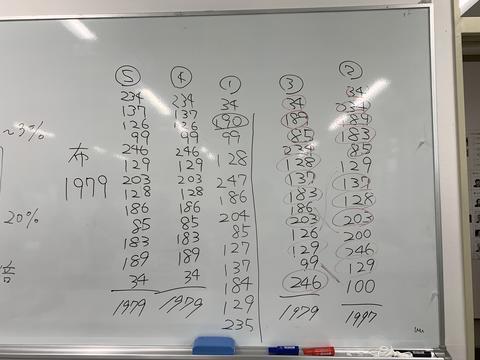 ~3%
20%
布
1979
⑤
234
137
126
99
246
129
203
128
186
85
183
189
34
1979
④
234
137
126
99
246
129
203
128
186
85
183
189
34
1979
①
34
190
99
128
247
186
204
85
127
137
184
129
235
③
34
189
85
234
128
137
183
186
203
126
129
99
246
1979
②
34
234
189
183
85
129
137
128
203
200
246
129
100
1997